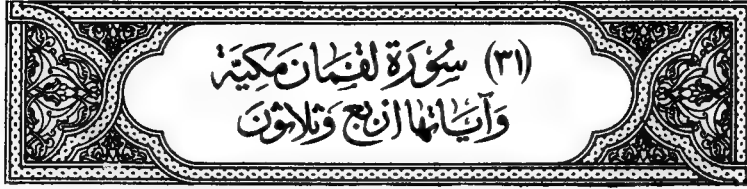 (٣١) سُورَة لقمَان مَكيَّة
وَآيَاتهَا أربَع وَثَلاثونَ